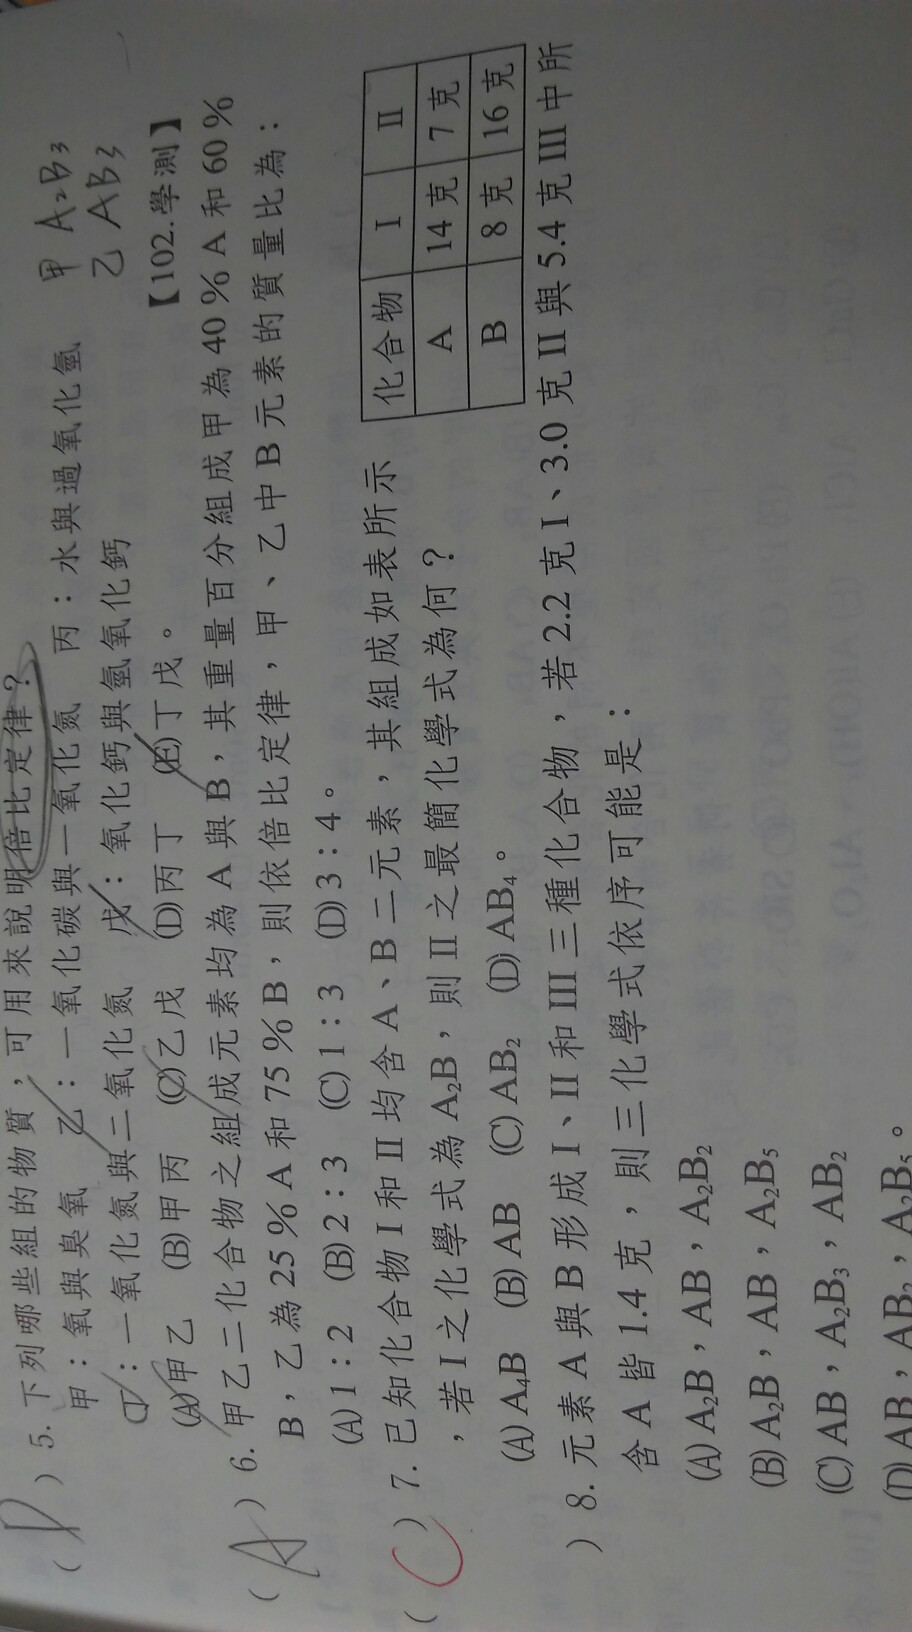 甲 A₂B₃
乙 AB₃
(D) 5. 下列哪些組的物質，可用來說明倍比定律？
甲：氧與臭氧 乙：一氧化碳與一氧化氮 丙：水與過氧化氫
丁：一氧化氮與二氧化氮 戊：氧化鈣與氫氧化鈣 【102.學測】
(A)甲乙 (B)甲丙 (C)乙戊 (D)丙丁 (E)丁戊。
(A) 6. 甲乙二化合物之組成元素均為 A 與 B，其重量百分組成甲為 40 % A 和 60 %
B，乙為 25 % A 和 75 % B，則依倍比定律，甲、乙中 B 元素的質量比為：
(A) 1：2 (B) 2：3 (C) 1：3 (D) 3：4。
(C) 7. 已知化合物 I 和 II 均含 A、B 二元素，其組成如表所示
，若 I 之化學式為 A₂B，則 II 之最簡化學式為何？
(A) A₄B (B) AB (C) AB₂ (D) AB₄。
化合物 I II
A 14 克 7 克
B 8 克 16 克
) 8. 元素 A 與 B 形成 I、II 和 III 三種化合物，若 2.2 克 I、3.0 克 II 與 5.4 克 III 中所
含 A 皆 1.4 克，則三化學式依序可能是：
(A) A₂B，AB，A₂B₂
(B) A₂B，AB，A₂B₅
(C) AB，A₂B₃，AB₂
(D) AB，AB₂，A₂B₅。